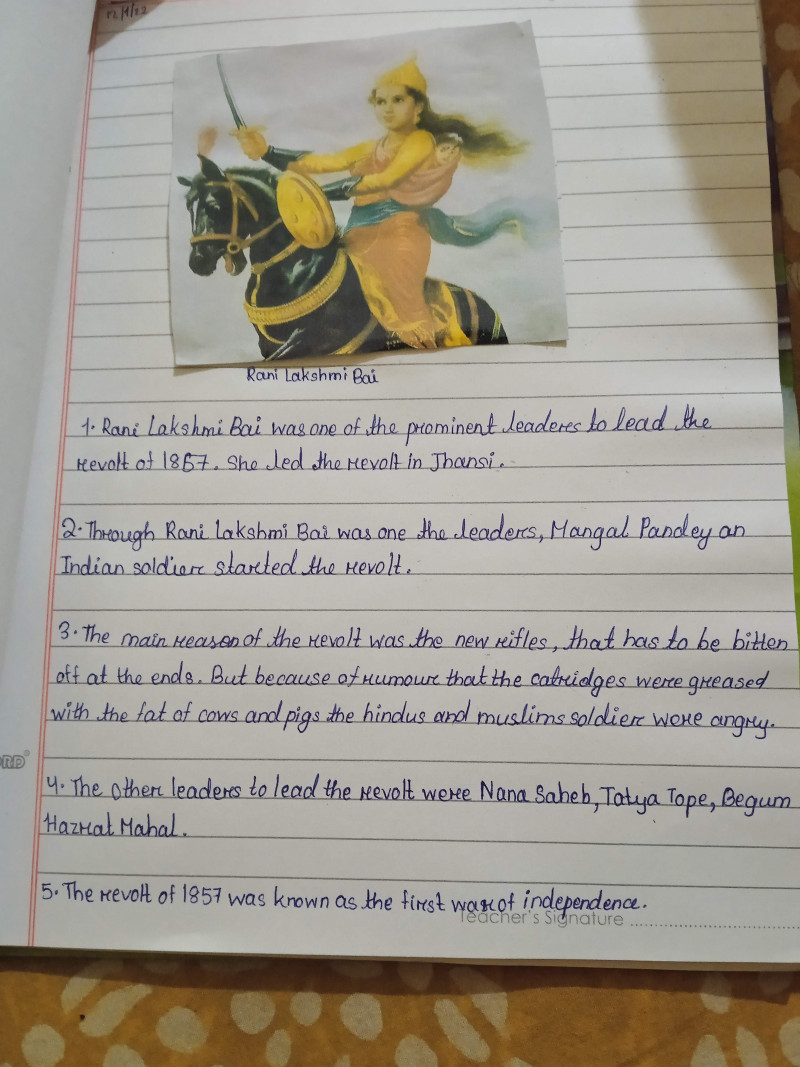 12/9/22
Rani Lakshmi Bai
1. Rani Lakshmi Bai was one of the prominent leaders to lead the
revolt of 1857. She led the revolt in Jhansi.
2. Through Rani Lakshmi Bai was one the leaders, Mangal Pandey an
Indian soldier started the revolt.
3. The main reason of the revolt was the new rifles, that has to be bitten
off at the ends. But because of rumour that the catridges were greased
with the fat of cows and pigs the hindus and muslims soldier were angry.
4. The other leaders to lead the revolt were Nana Saheb, Tatya Tope, Begum
Hazrat Mahal.
5. The revolt of 1857 was known as the first war of independence.
Teacher's Signature